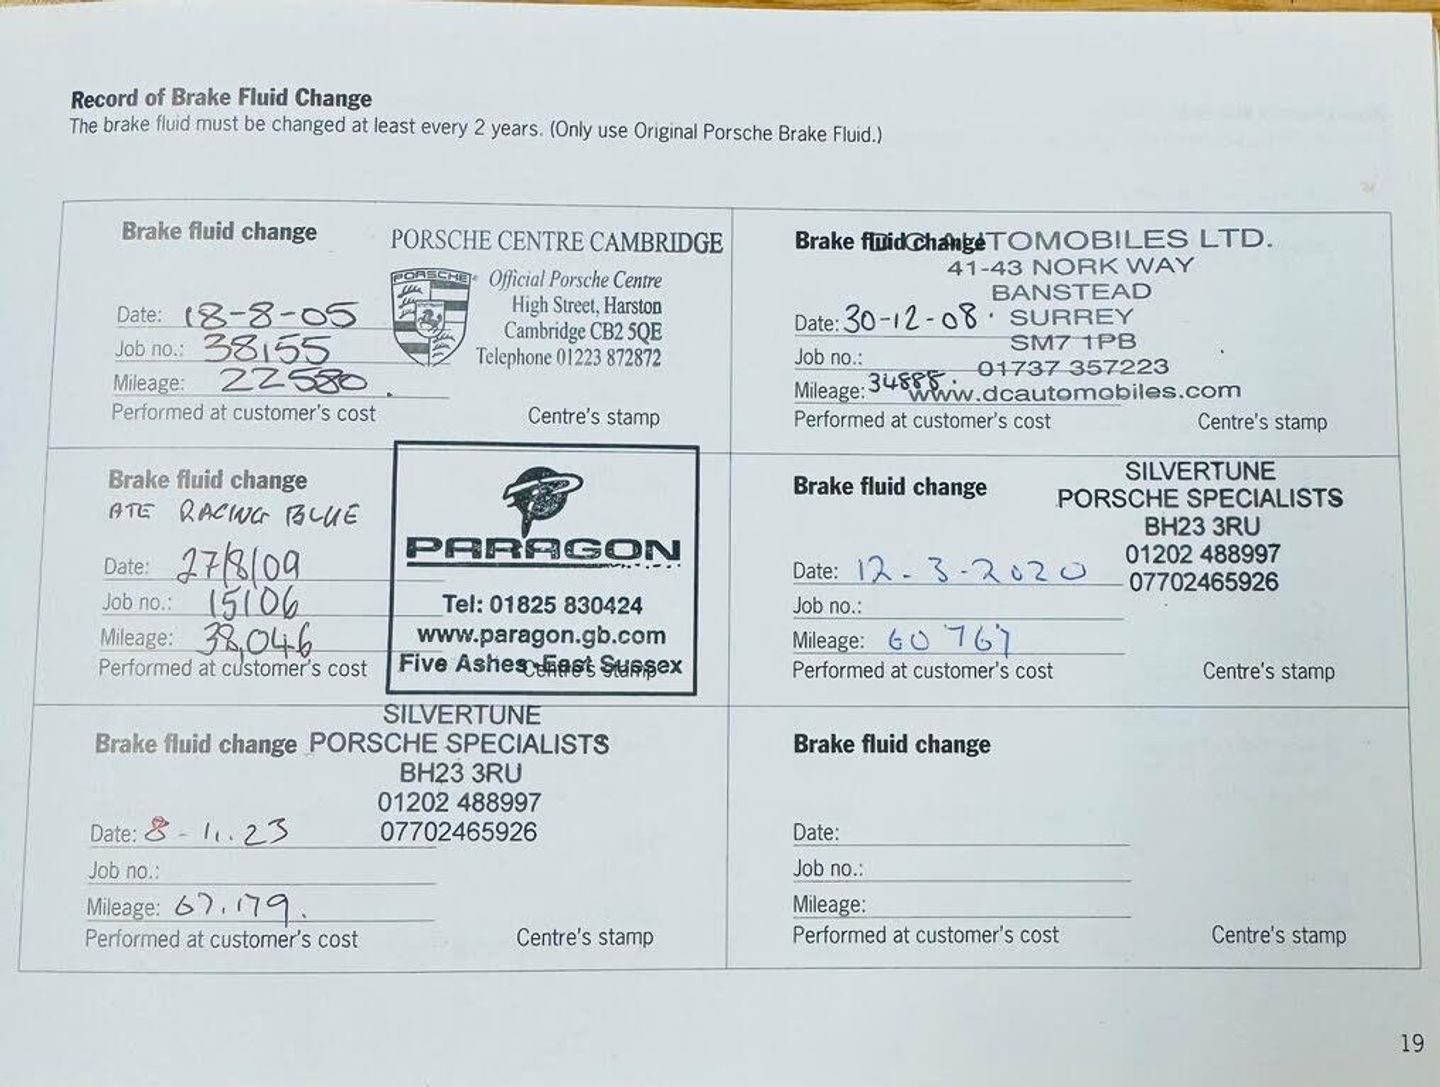 Record of Brake Fluid Change
The brake fluid must be changed at least every 2 years. (Only use Original Porsche Brake Fluid.)
Brake fluid change
PORSCHE CENTRE CAMBRIDGE
PORSCHE
Official Porsche Centre
High Street, Harston
Cambridge CB2 5QE
Telephone 01223 872872
Date: 18-8-05
Job no.: 38155
Mileage: 22580
Performed at customer's cost
Centre's stamp
Brake fluid change
DC AUTOMOBILES LTD.
41-43 NORK WAY
BANSTEAD
SURREY
SM7 1PB
01737 357223
www.dcautomobiles.com
Date: 30-12-08
Job no.:
Mileage: 34888
Performed at customer's cost
Centre's stamp
Brake fluid change
ATE RACING BLUE
Date: 27/8/09
Job no.: 15106
Mileage: 38,046
Performed at customer's cost
PARAGON
Tel: 01825 830424
www.paragon.gb.com
Five Ashes East Sussex
Centre's stamp
Brake fluid change
SILVERTUNE
PORSCHE SPECIALISTS
BH23 3RU
01202 488997
07702465926
Date: 12-3-2020
Job no.:
Mileage: 60 767
Performed at customer's cost
Centre's stamp
Brake fluid change
SILVERTUNE
PORSCHE SPECIALISTS
BH23 3RU
01202 488997
07702465926
Date: 8-11.23
Job no.:
Mileage: 67.179.
Performed at customer's cost
Centre's stamp
Brake fluid change
Date:
Job no.:
Mileage:
Performed at customer's cost
Centre's stamp
19